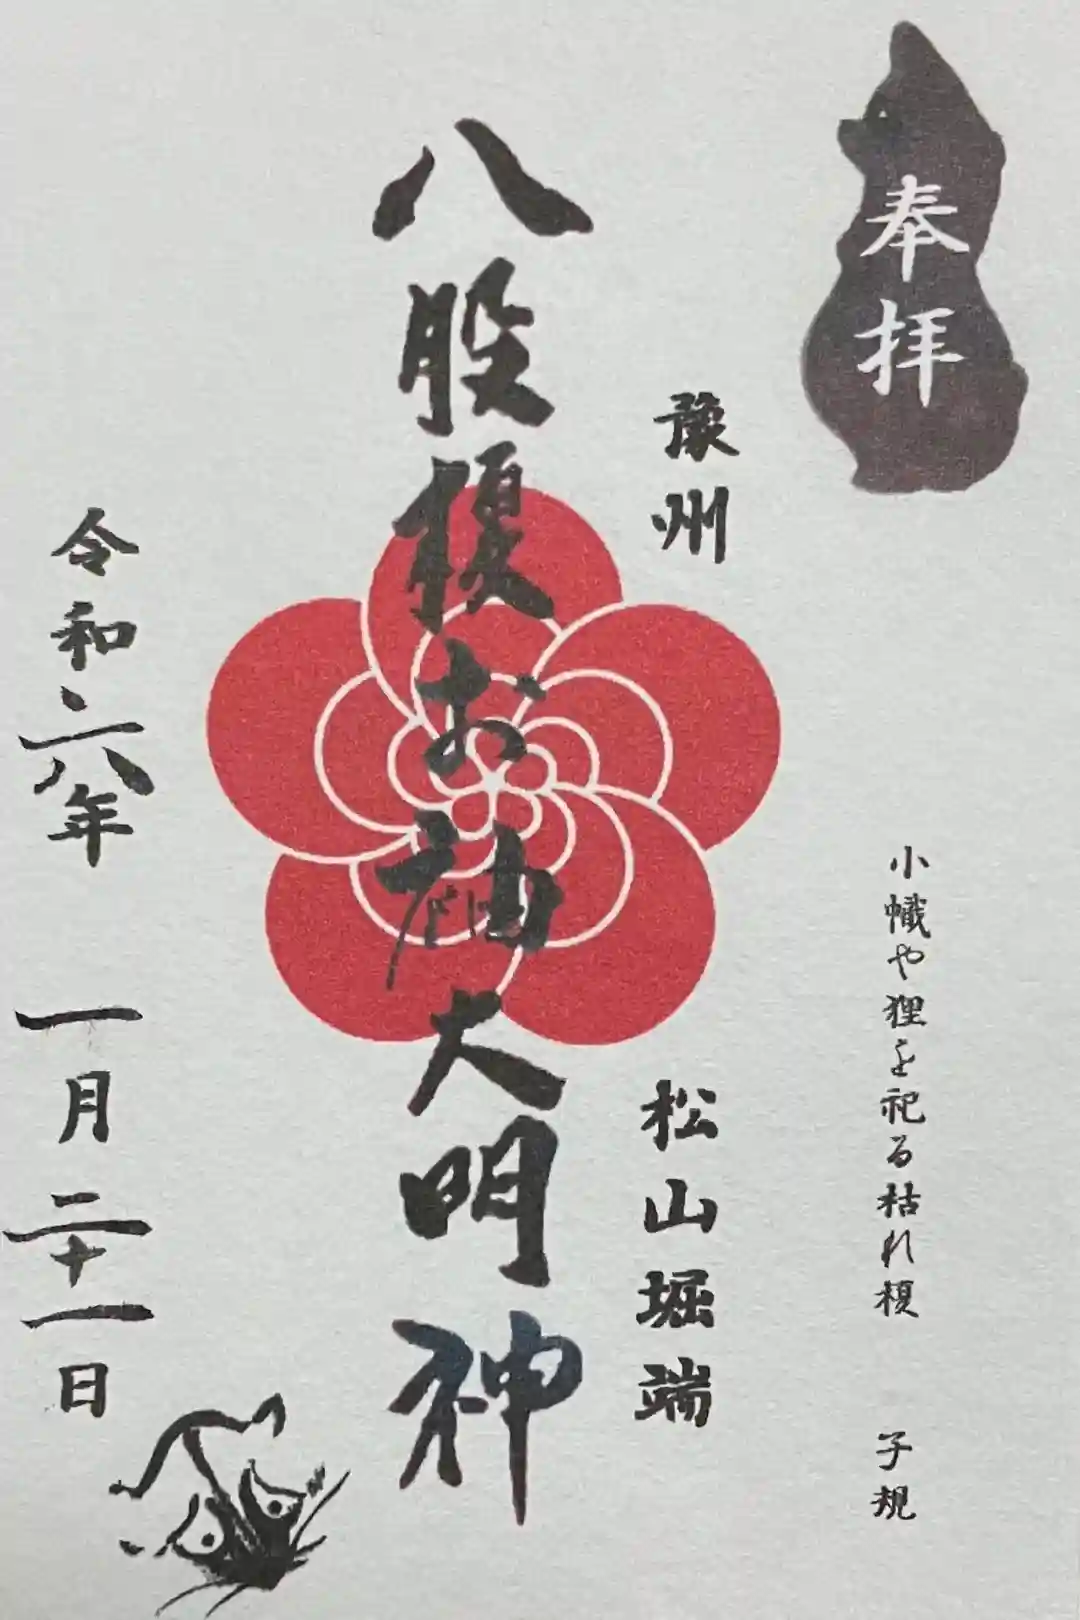 奉拝
小幟や狸を祀る枯れ榎 子規
豫州 松山堀端
八股榎お袖大明神
令和六年 一月二十一日